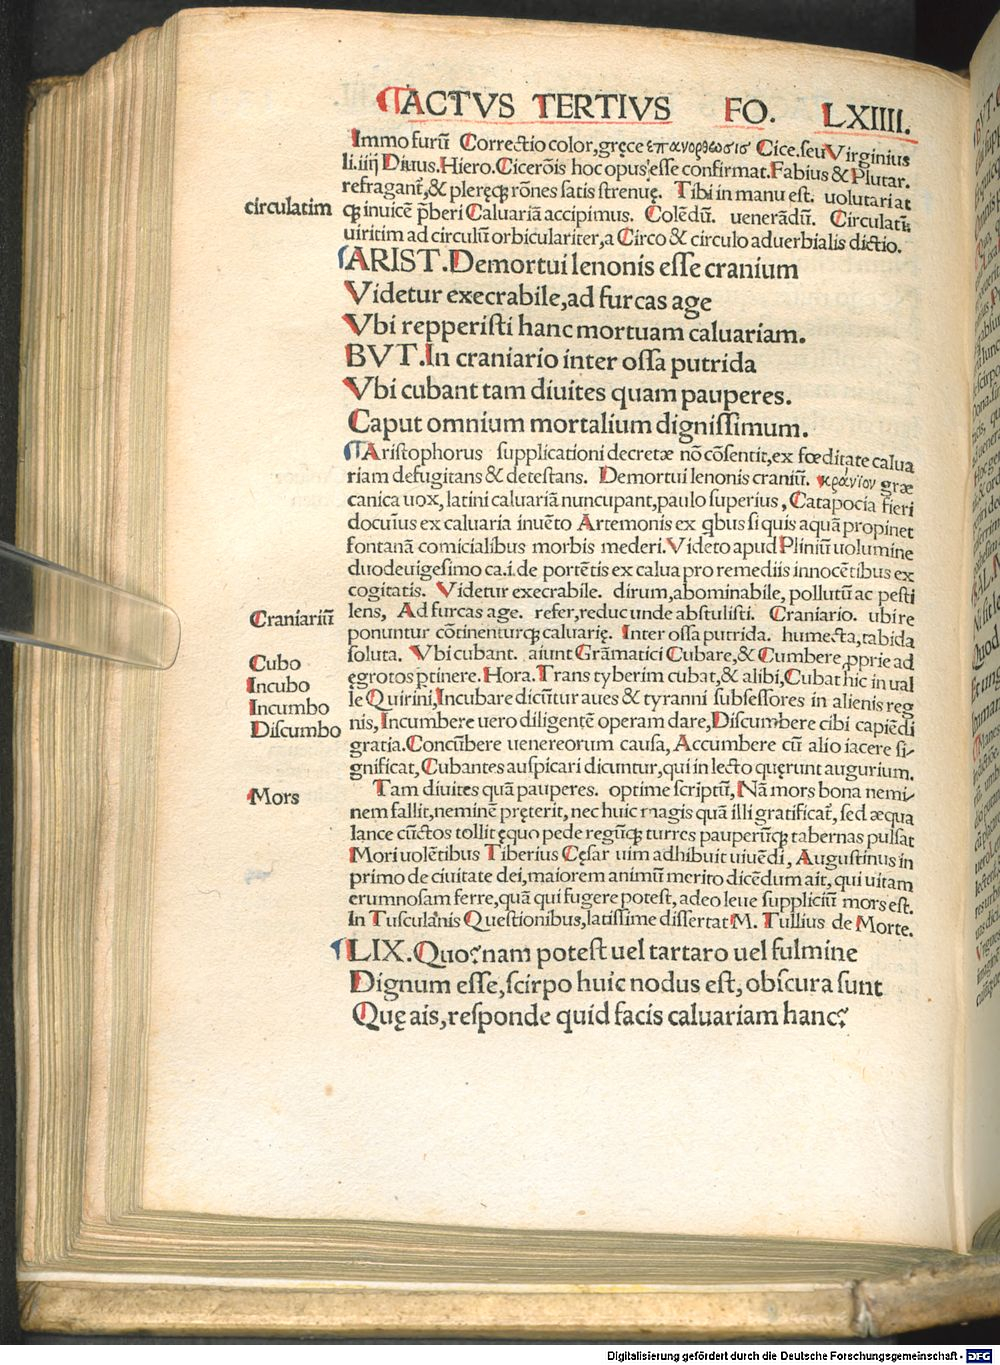 ACTVS TERTIVS FO. LXIIII.
Immo furū Correctio color, gręce επανορθωσις Cice. seu Virginius
li.iiij Diuus. Hiero. Cicerōis hoc opus esse confirmat. Fabius & Plutar.
refragant᷑, & pleręq; rōnes satis strenuę. Tibi in manu est. uolutari at
circulatim
q; inuicē p̄beri Caluariā accipimus. Colēdū. uenerādū. Circulati
uiritim ad circulū orbiculariter, a Circo & circulo aduerbialis dictio.
ARIST. Demortui lenonis esse cranium
Videtur execrabile, ad furcas age
Vbi repperisti hanc mortuam caluariam.
BVT. In craniario inter ossa putrida
Vbi cubant tam diuites quam pauperes.
Caput omnium mortalium dignissimum.
Aristophorus supplicationi decretæ nō cōsentit, ex fœditate calua
riam defugitans & detestans. Demortui lenonis craniū. κράνιον græ
canica uox, latini caluariā nuncupant, paulo superius, Catapocia fieri
docuius ex caluaria inuēto Artemonis ex qbus si quis aquā propinet
fontanā comicialibus morbis mederi. Videto apud Pliniū uolumine
duodeuigesimo ca.i. de portētis ex calua pro remediis innocētibus ex
cogitatis. Videtur execrabile. dirum, abominabile, pollutū ac pesti
Craniariū
lens, Ad furcas age. refer, reduc unde abstulisti. Craniario. ubi re
ponuntur cōtinenturq; caluarię. Inter ossa putrida. humecta, tabida
soluta. Vbi cubant. aiunt Grāmatici Cubare, & Cumbere, pprie ad
Cubo
ęgrotos ptinere. Hora. Trans tyberim cubat, & alibi, Cubat hic in ual
Incubo
le Quirini, Incubare dicūtur aues & tyranni subsessores in alienis reg
Incumbo
Discumbo
nis, Incumbere uero diligentē operam dare, Discumbere cibi capiēdi
gratia. Concūbere uenereorum causa, Accumbere cū alio iacere si-
gnificat, Cubantes auspicari dicuntur, qui in lecto quęrunt augurium.
Mors
Tam diuites quā pauperes. optime scriptū, Nā mors bona nemi-
nem fallit, neminē pręterit, nec huic magis quā illi gratificat᷑, sed æqua
lance cūctos tollit ęquo pede regūq; turres pauperūq; tabernas pulsat
Mori uolētibus Tiberius Cęsar uim adhibuit uiuēdi, Augustinus in
primo de ciuitate dei, maiorem animū merito dicēdum ait, qui uitam
erumnosam ferre, quā qui fugere potest, adeo leue suppliciū mors est.
In Tusculanis Questionibus, latissime dissertat M. Tullius de Morte.
LIX. Quo?nam potest uel tartaro uel fulmine
Dignum esse, scirpo huic nodus est, obscura sunt
Quę ais, responde quid facis caluariam hanc?
Digitalisierung gefördert durch die Deutsche Forschungsgemeinschaft - DFG